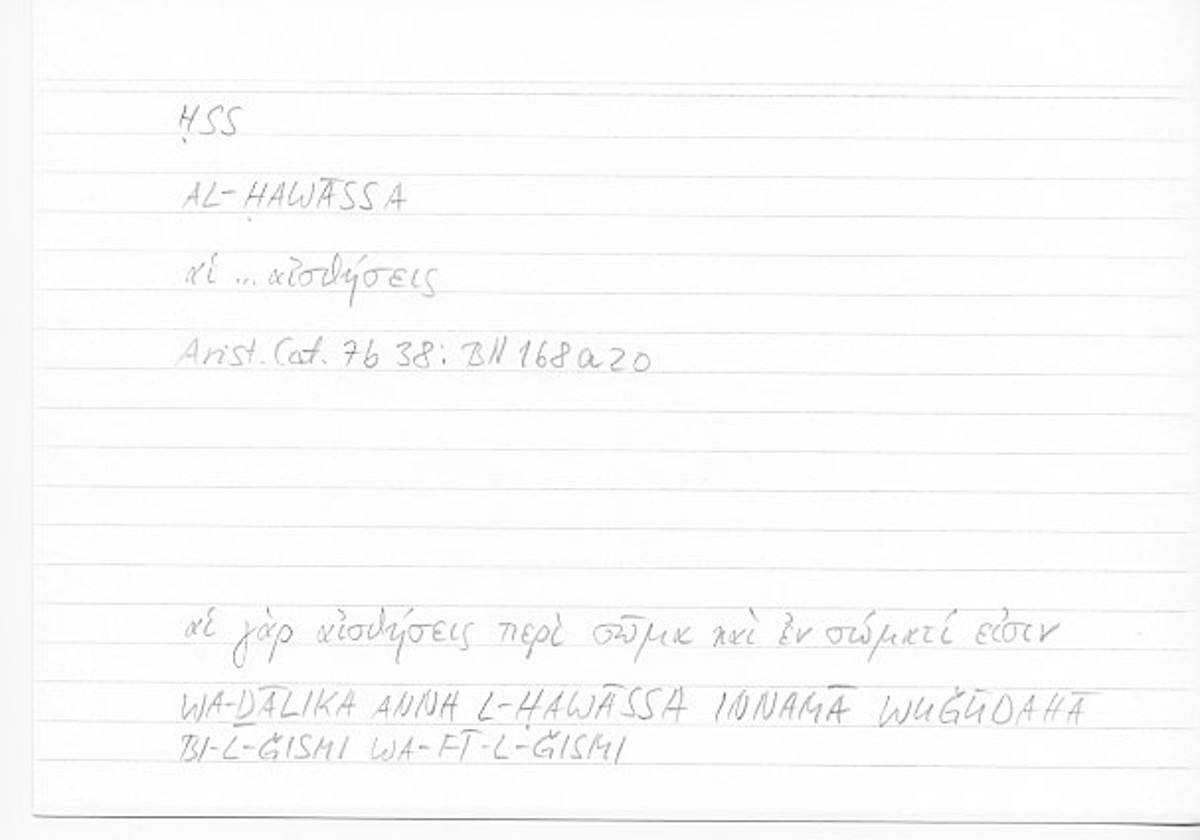 ḤSS
AL-ḤAWĀSSA
αἱ ... αἰσθήσεις
Arist. Cat. 7b 38: BN 168a20
αἱ γὰρ αἰσθήσεις περὶ σῶμα καὶ ἐν σώματί εἰσιν
WA-ḎĀLIKA ANNA L-ḤAWĀSSA INNAMĀ WUǦŪDAHĀ
BI-L-ǦISMI WA-FĪ-L-ǦISMI